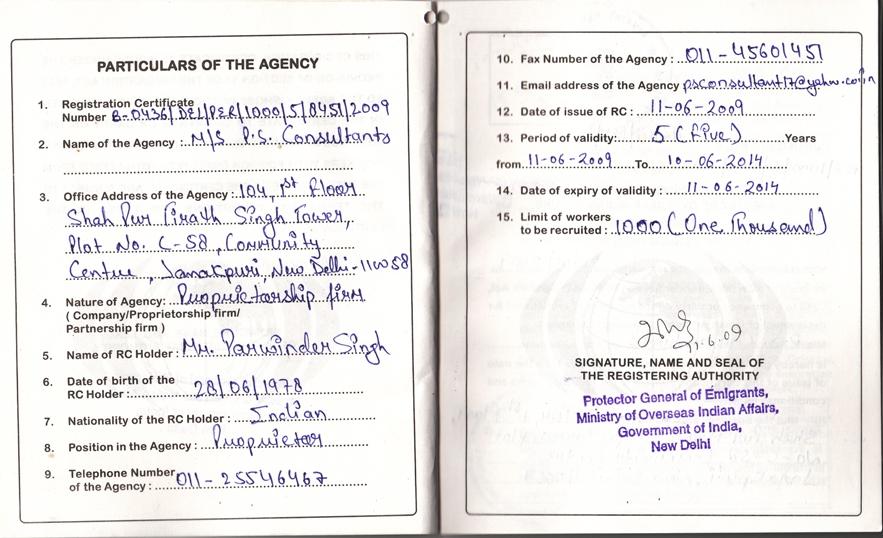 PARTICULARS OF THE AGENCY
1. Registration Certificate
Number B-0436/DEL/PER/1000/5/8451/2009
2. Name of the Agency : M/S P.S. Consultants
3. Office Address of the Agency : 104, 1st Floor
Shah Pur Tirath Singh Tower,
Plot No. C-58, Community
Centre, Janakpuri, New Delhi-110058
4. Nature of Agency: Proprietorship firm
( Company/Proprietorship firm/
Partnership firm )
5. Name of RC Holder : Mr. Parwinder Singh
6. Date of birth of the
RC Holder : 28/06/1978
7. Nationality of the RC Holder : Indian
8. Position in the Agency : Proprietor
9. Telephone Number
of the Agency : 011-25546467
10. Fax Number of the Agency : 011-45601451
11. Email address of the Agency psconsultant17@yahoo.co.in
12. Date of issue of RC : 11-06-2009
13. Period of validity: 5 (five) Years
from 11-06-2009 To 10-06-2014
14. Date of expiry of validity : 11-06-2014
15. Limit of workers
to be recruited : 1000 (One Thousand)
SIGNATURE, NAME AND SEAL OF
THE REGISTERING AUTHORITY
Protector General of Emigrants,
Ministry of Overseas Indian Affairs,
Government of India,
New Delhi